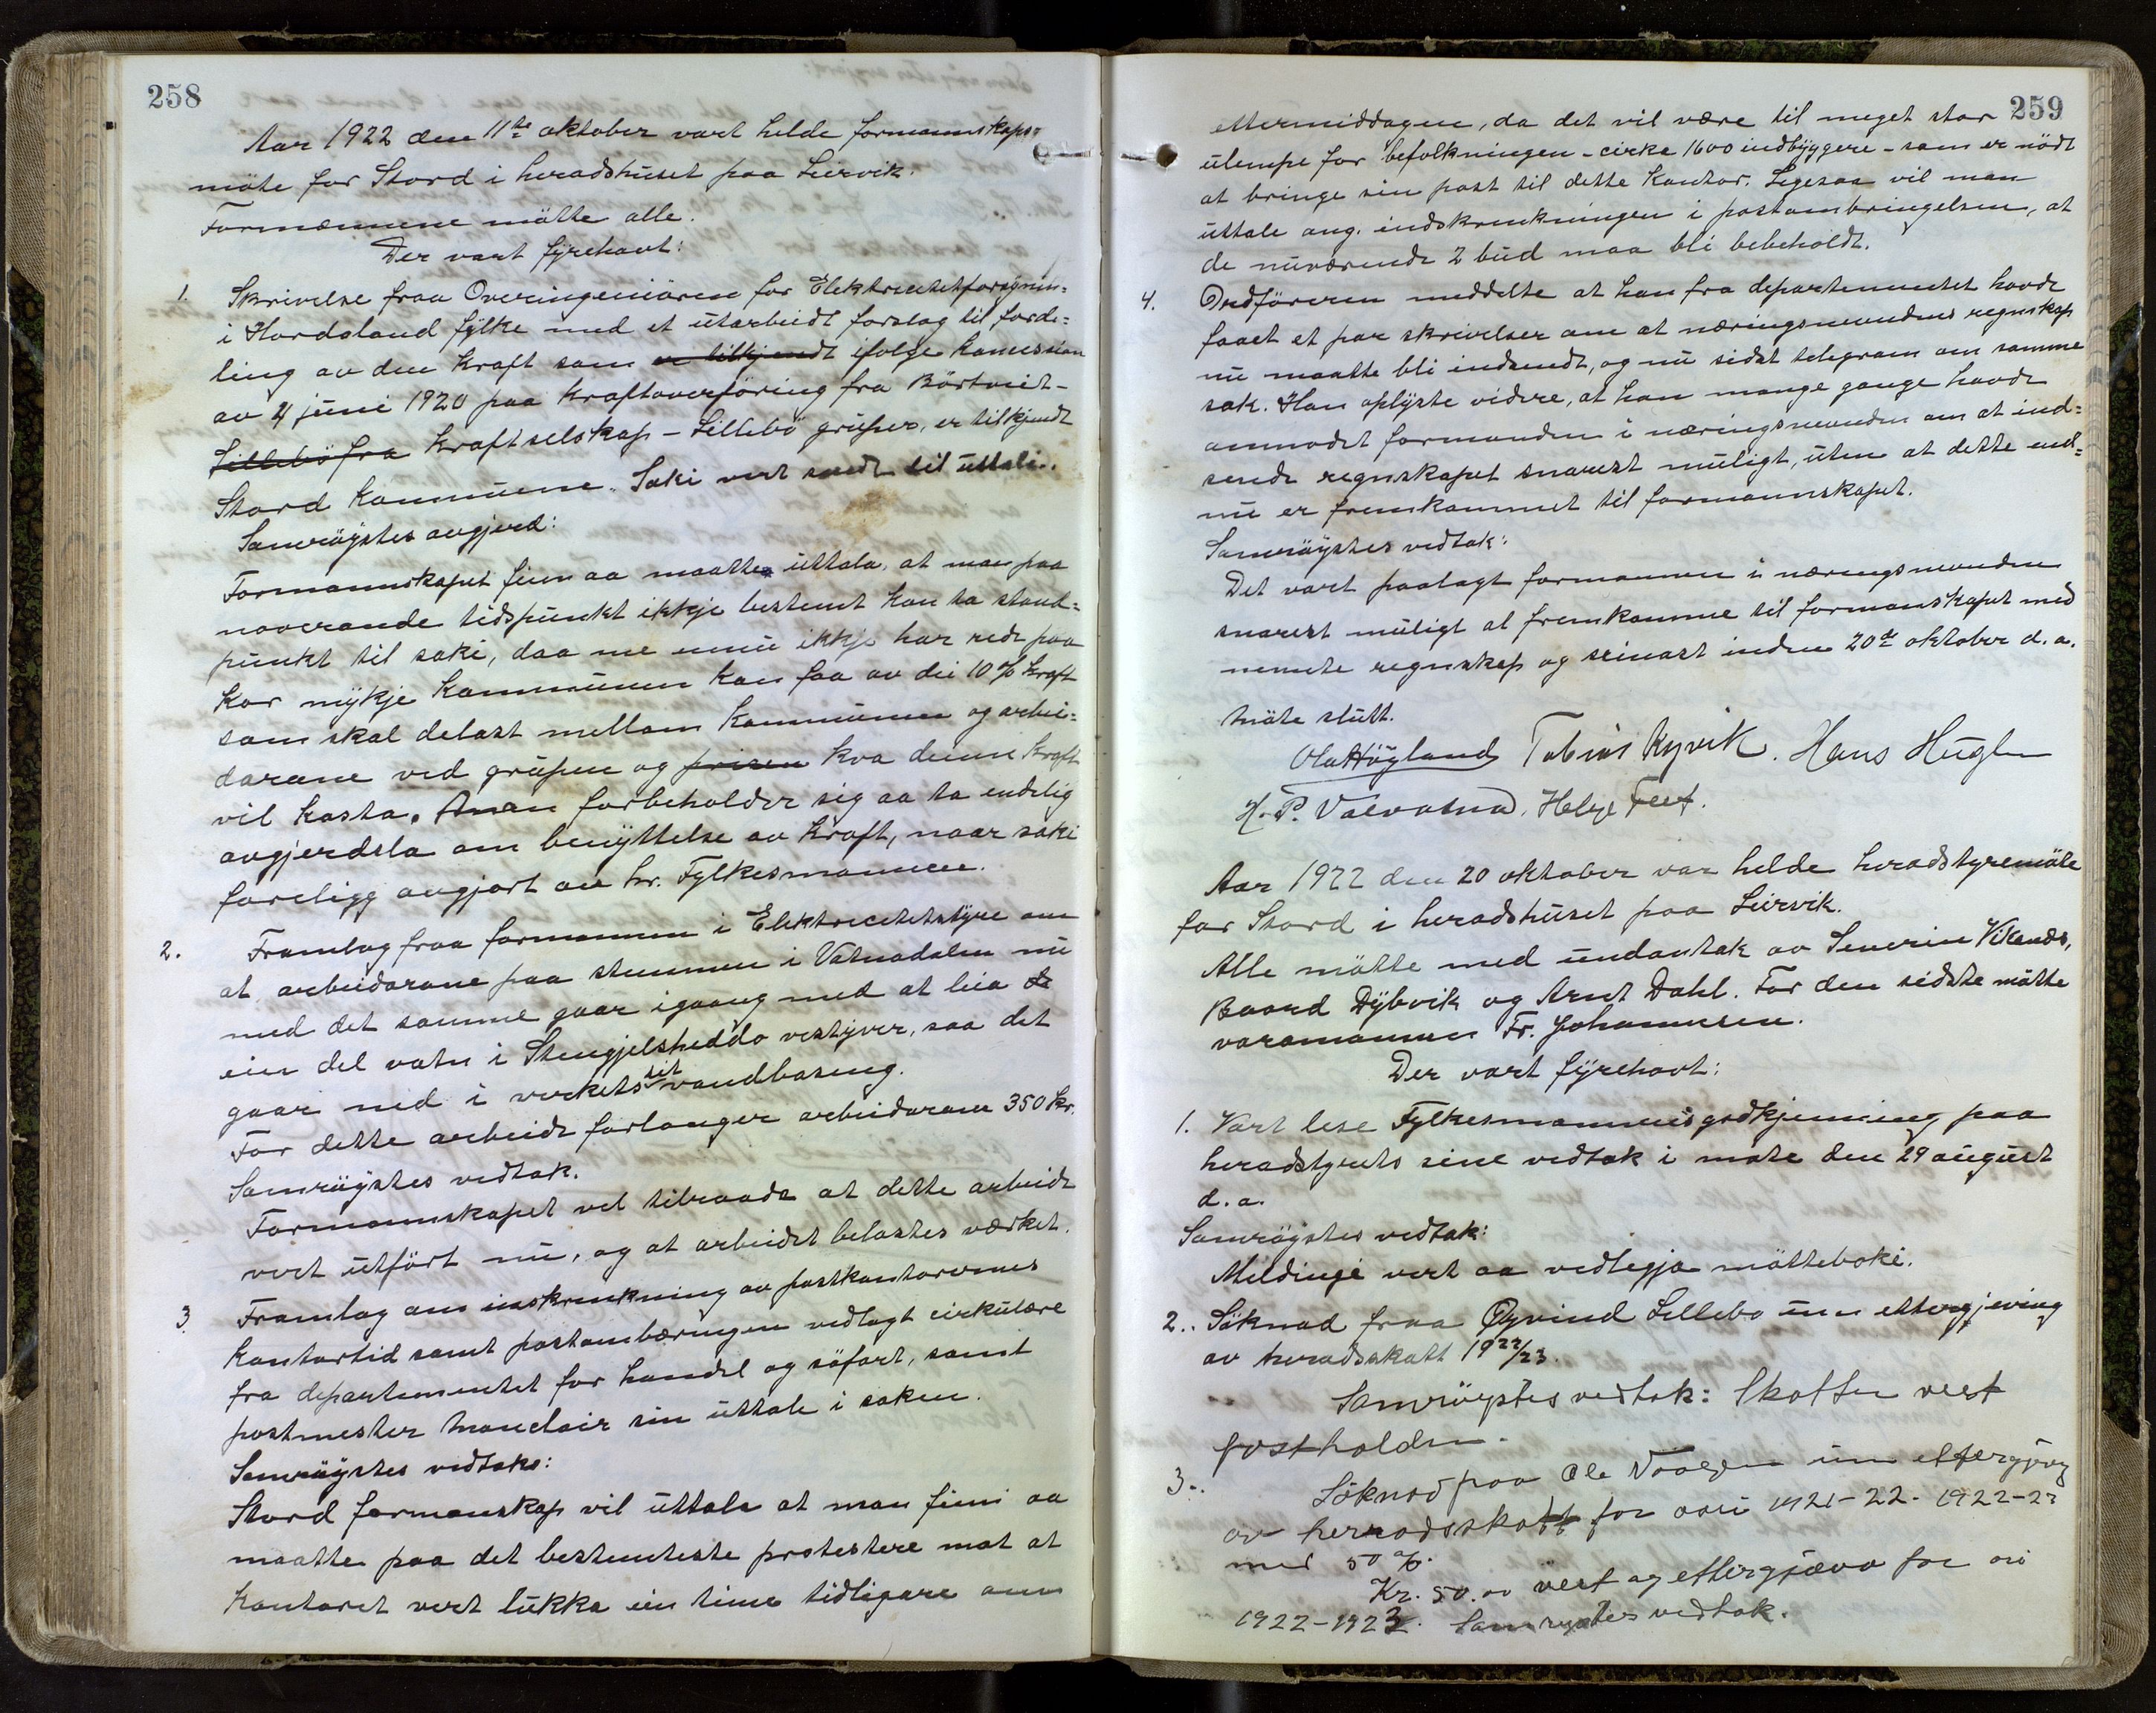 258
Aar 1922 den 11te oktober vart helde formannskaps=
möte for Stord i heradshuset paa Leirvik.
Formennene mötte alle.
Der vart fyrehavt:
1. Skrivelse fraa Overingeniören for Elektricitetforsynin=
i Hordaland fylke med et utarbeidt forslag til forde=
ling av den kraft som er tilkjendt ifolge koncession
av 4 juni 1920 paa kraftoverföring fra Börtveit-
Lillebö fra kraftselskap - Lillebö gruper, er tilkjendt
Stord kommune. Saki vert sendt til uttale.
Samröystes avgjerd:
Formannskapet finn aa maatte uttala, at man paa
noverande tidspunkt ikkje bestemt kan ta stand=
punkt til saki, daa me ennu ikkje har rede paa
kor mykje kommunen kan faa av dei 10 % kraft
som skal delast mellom kommunen og arbei=
darane ved grupen og prisen kva denne kraft
vil kosta. forbeholder sig aa ta endelig
avgjerdsla om benyttelse av kraft, naar saki
foreligg avgjort av hr. Fylkesmannen.
2. Framlag fraa formannen i Elektricitetstyre om
at arbeidarane paa stemmen i Vatnadalen nu
med det samme gaar igaang med at leia de
ein del vatn i Stengjelsheddo vestyver, saa det
gaar ned i verkets sit vandbaseng.
For dette arbeide forlanger arbeidarane 350 kr.
Samröystes vedtak.
Formannskapet vil tilraade at dette arbeide
vert utfört nu, og at arbeidet belastes værket.
3. Framlag om inskrenkning av postkontorernes
kontortid samt postombæringen vedlagt cirkulære
fra departementet for handel og söfart, samt
postmester Monclair sin uttale i saken.
Samröystes vedtak:
Stord formanskap vil uttala at man finn aa
maatte paa det bestemteste protestere mot at
kontoret vert lukka ein time tidligare om
259
ettermiddagen, da det vil være til meget stor
ulempe for befolkningen - cirka 1600 indbyggere - som er nödt
at bringe sin post til dette kontor. Legesaa vil man
uttale ang. indskrenkningen i postombringelsen, at
de nuværende 2 bud maa bli bebeholdt.
4. Ordföreren meddelte at han fra departementet havde
faaet et par skrivelser om at næringsnevndens regnskap
nu maatte bli indsendt, og nu sidst telegram om samme
sak. Han oplyste videre, at han mange gange havde
anmodet formanden i næringsnevnden om at ind=
sende regnskapet snarest muligt, uten at dette end=
nu er fremkommet til formannskapet.
Samröystes vedtak:
Det vart paalagt formannen i næringsnevnden
snarest muligt at fremkomme til formanskapet med
nemnte regnskap og seinast inden 20de oktober d. a.
Möte slutt.
Ola Högland Tobias Kyvik. Hans Huglen
H. P. Valvatna. Helge Teet.
Aar 1922 den 20 oktober var helde heradstyremöte
for Stord i heradshuset paa Leirvik.
Alle mötte med undantak av Severin Vikanes,
Baard Dybvik og Arnt Dahl. For den sidste mötte
varamannen Fr. Johannesen.
Der vart fyrehavt:
1. Vart lese Fylkesmannens godkjenning paa
heradstyrets sine vedtak i mote den 29 august
d. a.
Samröystes vedtak:
Meldingi vert aa vedlegja mötteboki.
2. Söknad fraa Øyvind Lillebo um ettergjeving
av heradsskatt 1922/23.
Samröystes vedtak: Skatten vert
fastholden.
3. Söknad paa Ole um ettergjeving
av herradsskatt for aari 1921-22. 1922-23
med 50 %.
Kr. 50.00 vert ag ettergjæva for ari
1922-1923. Samröystes vedtak.